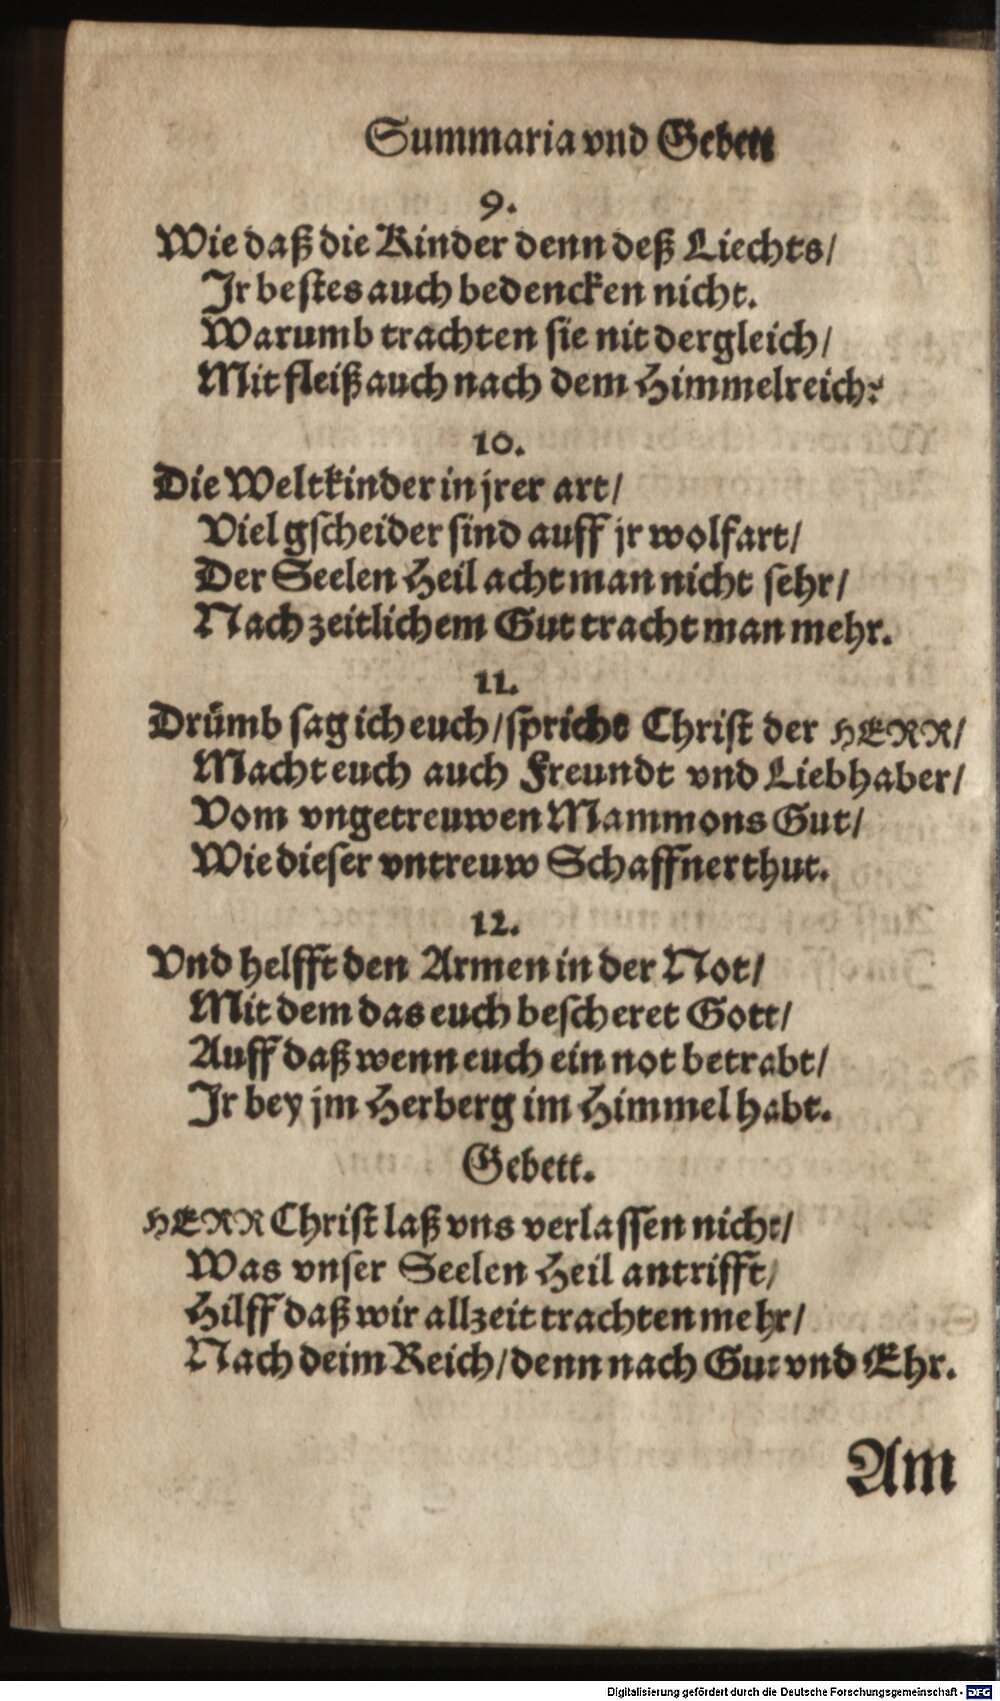 Summaria vnd Gebett
9.
Wie daß die Kinder denn deß Liechts/
Jr bestes auch bedencken nicht.
Warumb trachten sie nit dergleich/
Mit fleiß auch nach dem Himmelreich?
10.
Die Weltkinder in jrer art/
Viel gscheider sind auff jr wolfart/
Der Seelen Heil acht man nicht sehr/
Nach zeitlichem Gut tracht man mehr.
11.
Drümb sag ich euch/ spricht Christ der HERR/
Macht euch auch Freundt vnd Liebhaber/
Vom vngetreuwen Mammons Gut/
Wie dieser vntreuw Schaffner thut.
12.
Vnd helfft den Armen in der Not/
Mit dem das euch bescheret Gott/
Auff daß wenn euch ein not betrabt/
Jr bey jm Herberg im Himmel habt.
Gebett.
HERR Christ laß vns verlassen nicht/
Was vnser Seelen Heil antrifft/
Hilff daß wir allzeit trachten mehr/
Nach deim Reich/ denn nach Gut vnd Ehr.
Am
Digitalisierung gefördert durch die Deutsche Forschungsgemeinschaft - DFG